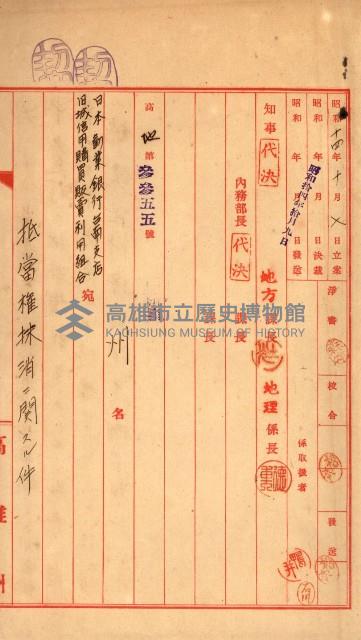 昭和十四年十月 日立案
昭和 年 月 日決裁
昭和 年 月 日發送
昭和拾四年拾月九日
淨書
校合
發送
係取扱者
知事 代決
內務部長 代決
地方課長
地理係長
課長
課長
高地第參參五五號
州
名
宛
日本勸業銀行台南支店
旧城信用購買販賣利用組合
抵當權抹消ニ関スル件
高雄州
高雄市立歷史博物館
KAOHSIUNG MUSEUM OF HISTORY